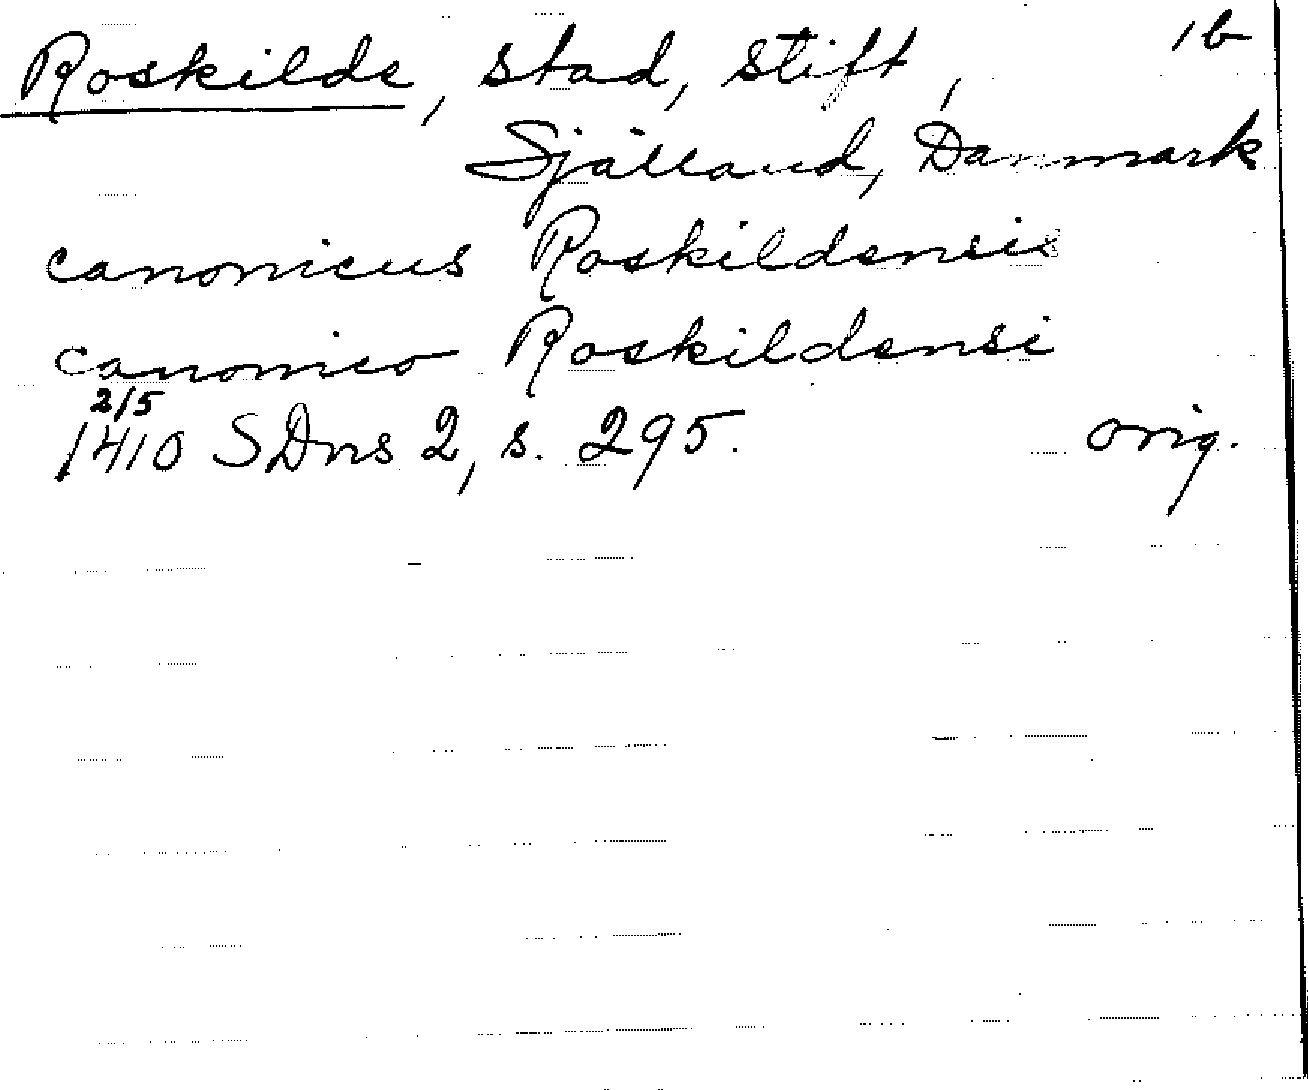 Roskilde, stad, stift, 1b
Själland, Danmark
canonicus Roskildensis
canonico Roskildensi
2/5
1410 SDns 2, s. 295. orig.